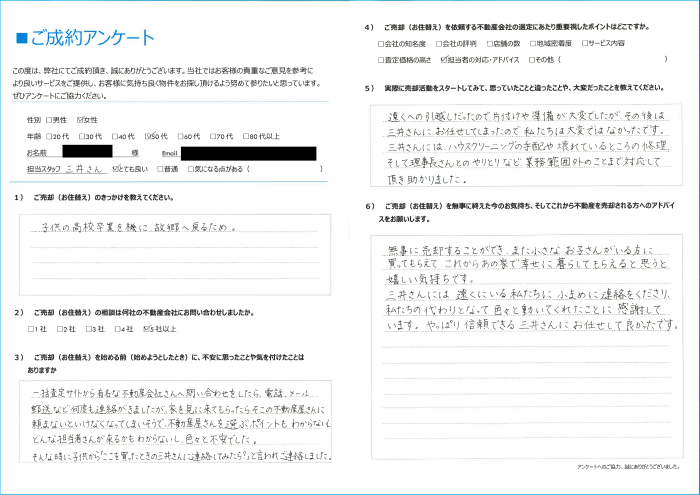 ■ご成約アンケート
この度は、弊社にてご成約頂き、誠にありがとうございます。当社ではお客様の貴重なご意見を参考に
より良いサービスをご提供し、お客様に気持ち良く物件をお探し頂けるよう努めて参りたいと思っています。
ぜひアンケートにご協力ください。
性別 □男性 ☑女性
年齢 □20代 □30代 □40代 ☑50代 □60代 □70代 □80代以上
お名前 様 Email
担当スタッフ 三井さん ☑とても良い □普通 □気になる点がある（ ）
1） ご売却（お住替え）のきっかけを教えてください。
子供の高校卒業を機に故郷へ戻るため。
2） ご売却（お住替え）の相談は何社の不動産会社にお問い合わせしましたか。
□1社 □2社 □3社 □4社 ☑5社以上
3） ご売却（お住替え）を始める前（始めようとしたとき）に、不安に思ったことや気を付けたことは
ありますか
一括査定サイトから有名な不動産会社さんへ問い合わせをしたら、電話、メール
郵送など何度も連絡がきましたが、家を見に来てもらったらそこの不動産屋さんに
頼まないといけなくなってしまいそうで、不動産屋さんを選ぶポイントもわからないし
どんな担当者さんが来るかもわからないし、色々と不安でした。
そんな時に子供から「ここを買ったときの三井さんに連絡してみたら?」と言われご連絡しました。
4） ご売却（お住替え）を依頼する不動産会社の選定にあたり重要視したポイントはどこですか。
□会社の知名度 □会社の評判 □店舗の数 □地域密着度 □サービス内容
□査定価格の高さ ☑担当者の対応・アドバイス □その他（ ）
5） 実際に売却活動をスタートしてみて、思っていたことと違ったことや、大変だったことを教えてください。
遠くへの引越しだったので片付けや準備が大変でしたが、その後は
三井さんにお任せしてしまったので私たちは大変ではなかったです。
三井さんには、ハウスクリーニングの手配や壊れているところの修理
そして理事長さんとのやりとりなど業務範囲外のことまで対応して
頂き助かりました。
6） ご売却（お住替え）を無事に終えた今のお気持ち、そしてこれから不動産を売却される方へのアドバイ
スをお願いします。
無事に売却することができ、また小さなお子さんがいる方に
買ってもらえてこれからあの家で幸せに暮らしてもらえると思うと
嬉しい気持ちです。
三井さんには遠くにいる私たちに小まめに連絡をくださり、
私たちの代わりとなって色々と動いてくれたことに感謝して
います。やっぱり信頼できる三井さんにお任せして良かったです。
アンケートへのご協力、誠にありがとうございました。